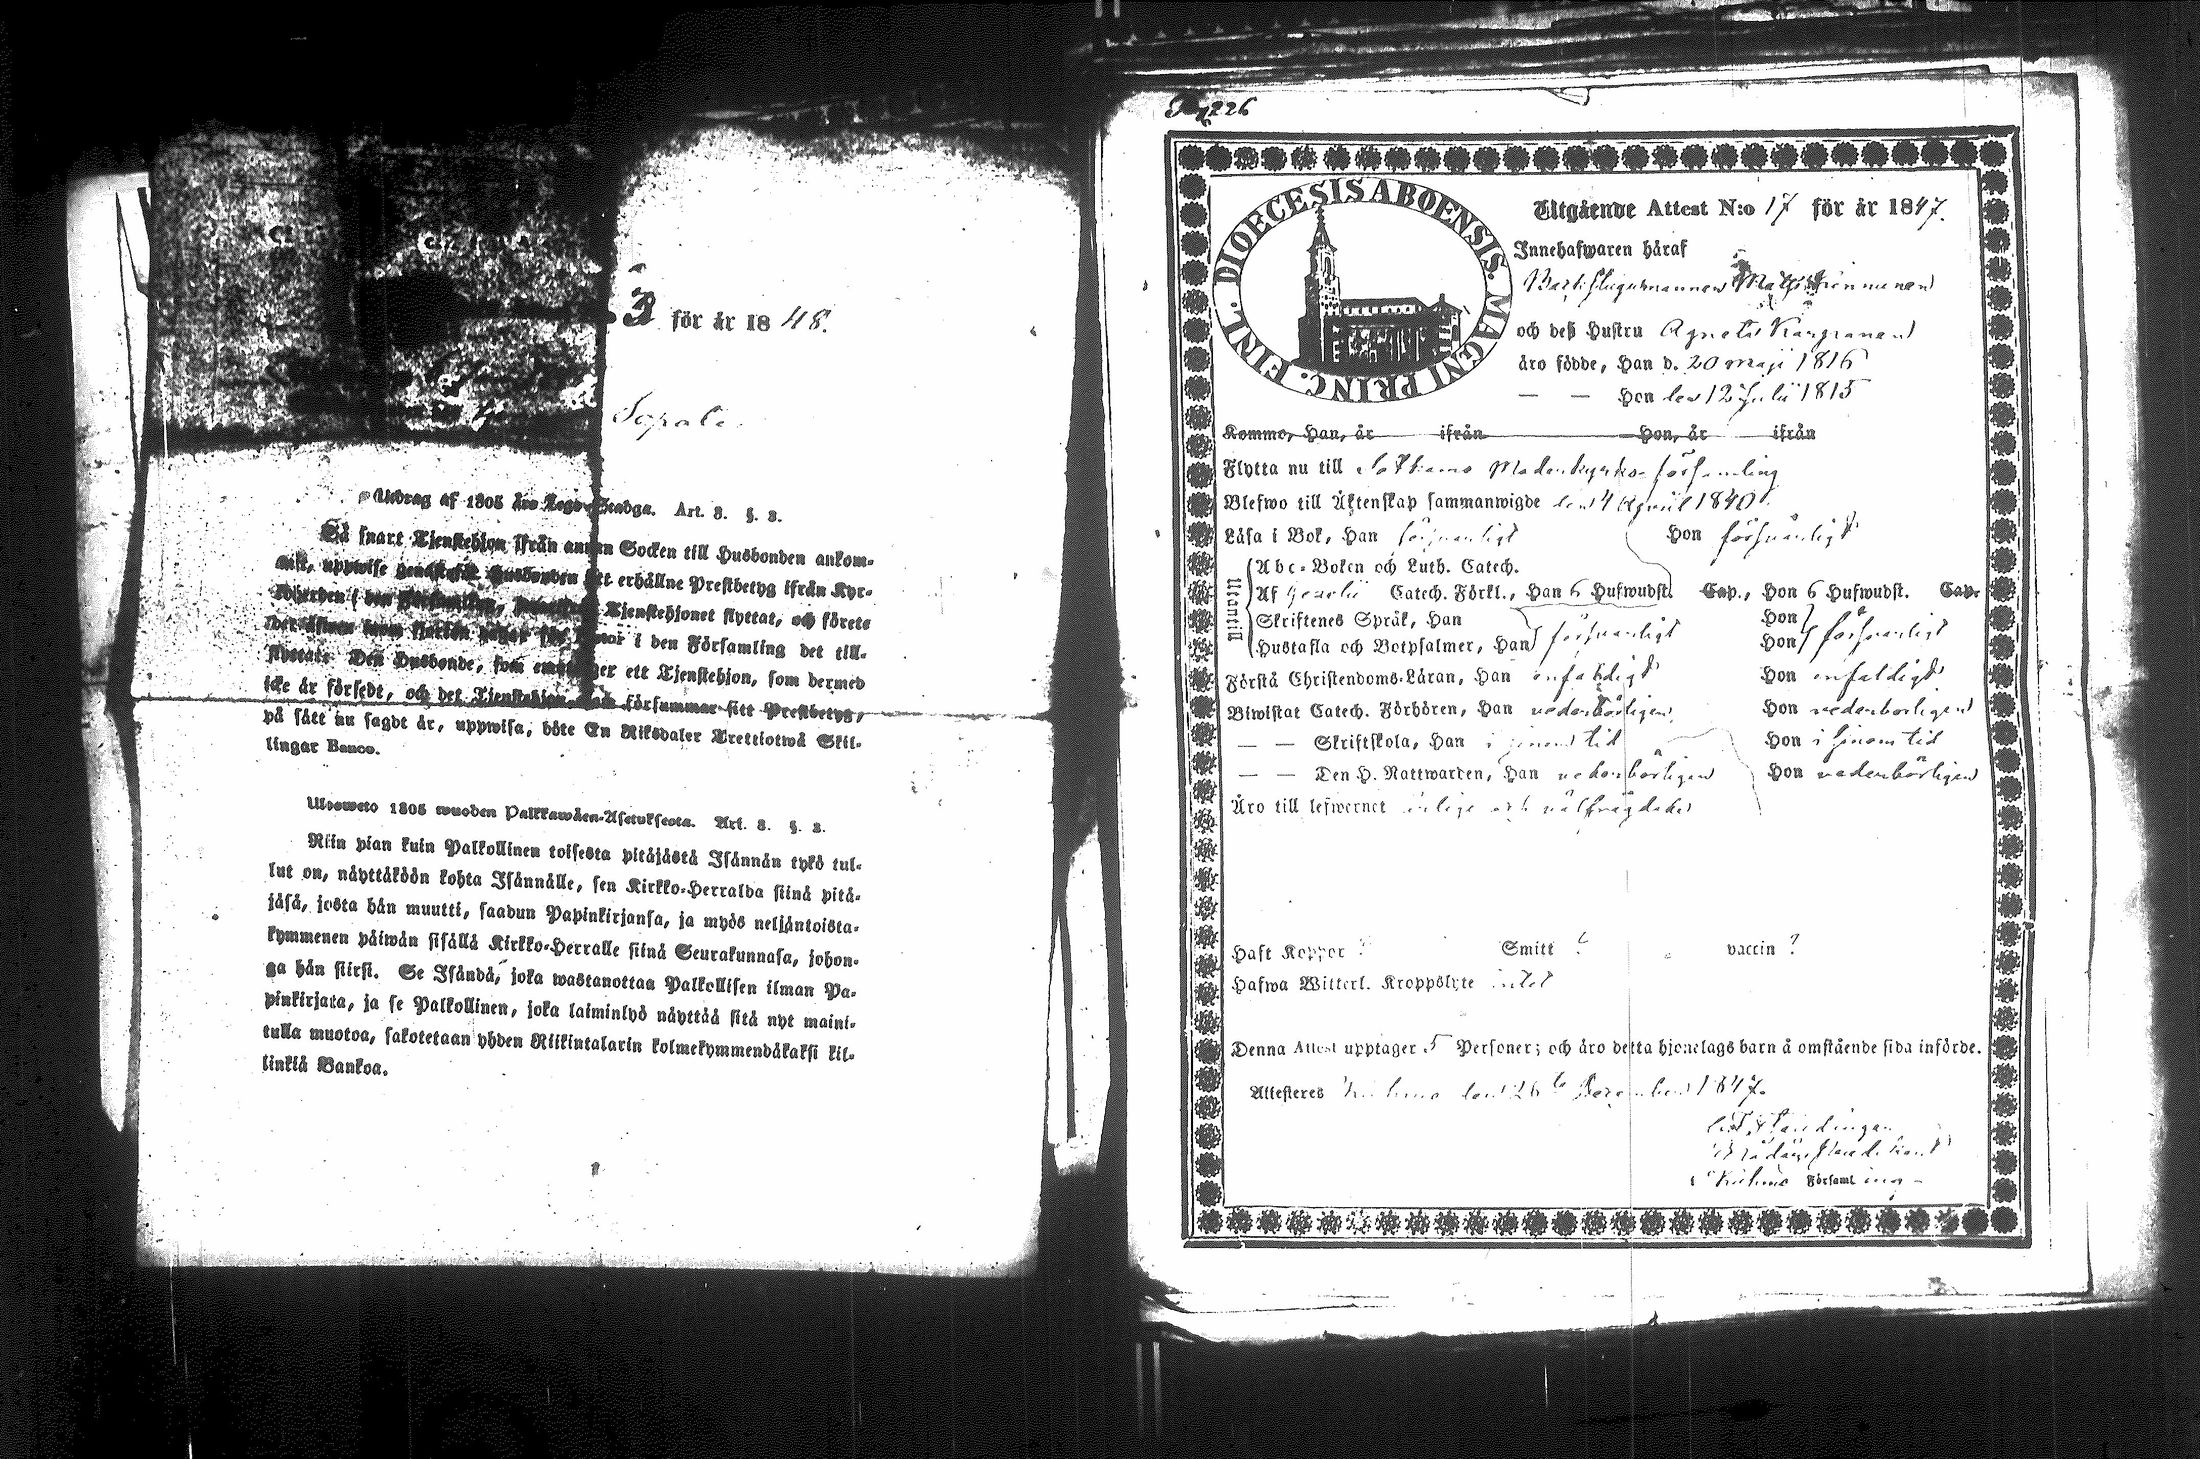 3 för år 1848.
Sopala.
Utdrag af 1805 års Lego-Stadga. Art. 3. §. 3.
Så snart Tjenstehjon ifrån annan Socken till Husbonden ankom-
mit, uppwise genast Husbonden ett erhållne Prestbetyg ifrån Kyr-
Tjenstehjonet flyttat, och förete
i den Församling det till-
flyttat. Den Husbonde, som ett Tjenstehjon, som dermed
icke är försedt, och det Tjenstehjon, som försummar sitt Prestbetyg,
på sätt nu sagdt är, uppwisa, böte En Riksdaler Trettiotwå Skil-
lingar Banco.
Ulosweto 1805 wuoden Palkkawäen-Asetuksesta. Art. 3. §. 3.
Niin pian kuin Palkollinen toisesta pitäjästä Isännän tykö tul-
lut on, näyttäköön kohta Isännälle, sen Kirkko-Herralda siinä pitä-
jäsä, josta hän muutti, saadun Papinkirjansa, ja myös neljäntoista-
kymmenen päiwän sisällä Kirkko-Herralle siinä Seurakunnasa, johon-
ga hän siirsi. Se Isändä, joka wastanottaa Palkollisen ilman Pa-
pinkirjata, ja se Palkollinen, joka laiminlyö näyttää sitä nyt maini-
tulla muotoa, sakotetaan yhden Riikintalarin kolmekymmendäkaksi kil-
linkiä Bankoa.
226
DIOECESIS ABOENSIS. MAGNI PRINC. FINL.
Utgående Attest N:o 17 för år 1847.
Innehafwaren häraf
och deß Hustru Agneta
äro födde, Han d. 20 maji 1816
— — Hon den 12 Julii 1815
Komme, Han, år ifrån Hon, år ifrån
Flytta nu till Sotkamo Moderkyrko-församling
Blefwo till Äktenskap sammanwigde den 4 April 1840.
Läsa i Bok, Han försvarligt Hon försvarligt
Utantill
Abc-Boken och Luth. Catech.
Af Gezelii Catech. Förkl., Han 6 Hufwudst. Cap., Hon 6 Hufwudst. Cap.
Skriftenes Språk, Han Hon
Hustafla och Botpsalmer, Han försvarligt Hon försvarligt
Förstå Christendoms-Läran, Han enfaldigt Hon enfaldigt
Biwistat Catech. Förhören, Han vederbörligen Hon vederbörligen
— — Skriftskola, Han i sinom tid Hon i sinom tid
— — Den H. Nattwarden, Han vederbörligen Hon vederbörligen
Äro till lefwernet ärlige och välfrägdade
Haft Koppor ? Smitt ? vaccin ?
Hafwa Witterl. Kroppslyte intet
Denna Attest upptager 5 Personer; och äro detta hjonelags barn å omstående sida införde.
Attesteres Kuhmo den 26 December 1847.
Kuhmo Församling